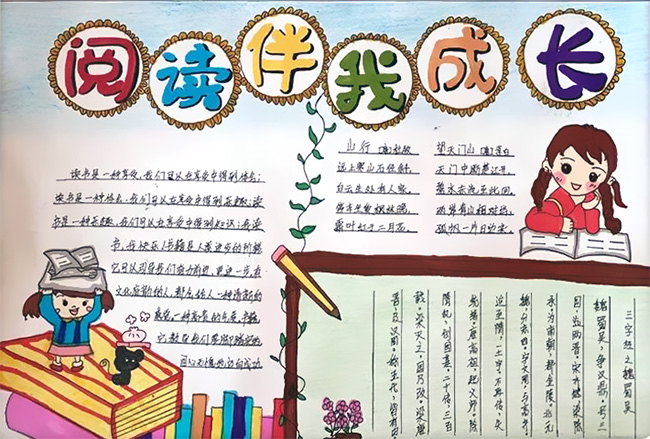 阅读伴我成长
读书是一种享受,我们可以在享受中得到快乐;
读书是一种快乐,我们可以在享受中得到乐趣;读
书是一种乐趣,我们可以在享受中得到知识;我读
书,我快乐!书籍是人类进步的阶梯
它可以引导我们奋力前进,更进一步,在
山行 [唐]杜牧
远上寒山石径斜,
白云生处有人家。
停车坐爱枫林晚,
霜叶红于二月花。
望天门山 [唐]李白
天门中断楚江开,
碧水东流至此回。
两岸青山相对出,
孤帆一片日边来。
三字经之魏蜀吴
魏蜀吴,争汉鼎,号三
国,迄两晋。宋齐继,梁陈
承,为南朝,都金陵。北元
魏,分东西,宇文周,与高齐。
迨至隋,一土宇,不再传,失
统绪。唐高祖,起义师,除
隋乱,创国基。二十传,三百
载,梁灭之,国乃改。梁唐
晋,及汉周,称五代,皆有由